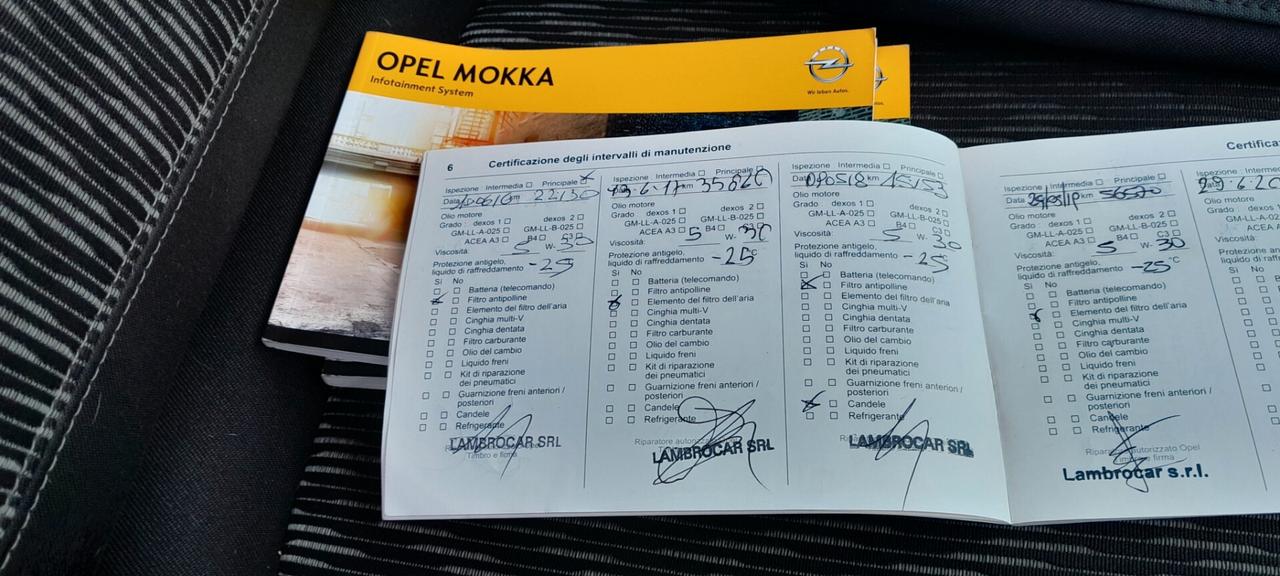 OPEL MOKKA
Infotainment System
Wir leben Autos.
6 Certificazione degli intervalli di manutenzione
Ispezione Intermedia □ Principale □
Data km 22130
Olio motore
Grado : dexos 1 □ dexos 2 □
GM-LL-A-025 □ GM-LL-B-025 □
ACEA A3 □ B4 □ C3 □
Viscosità: 5 W- 30
Protezione antigelo,
liquido di raffreddamento -25
Sì No
□ □ Batteria (telecomando)
□ □ Filtro antipolline
□ □ Elemento del filtro dell'aria
□ □ Cinghia multi-V
□ □ Cinghia dentata
□ □ Filtro carburante
□ □ Olio del cambio
□ □ Liquido freni
□ □ Kit di riparazione
dei pneumatici
□ □ Guarnizione freni anteriori /
posteriori
□ □ Candele
□ □ Refrigerante
Timbro e firma
LAMBROCAR SRL
Ispezione Intermedia □ Principale □
Data 13-6-17 km
Olio motore
Grado : dexos 1 □ dexos 2 □
GM-LL-A-025 □ GM-LL-B-025 □
ACEA A3 □ B4 □ C3 □
Viscosità: 5 W- 30
Protezione antigelo,
liquido di raffreddamento -25 °C
Sì No
□ □ Batteria (telecomando)
□ □ Filtro antipolline
□ □ Elemento del filtro dell'aria
□ □ Cinghia multi-V
□ □ Cinghia dentata
□ □ Filtro carburante
□ □ Olio del cambio
□ □ Liquido freni
□ □ Kit di riparazione
dei pneumatici
□ □ Guarnizione freni anteriori /
posteriori
□ □ Candele
□ □ Refrigerante
Riparatore
LAMBROCAR SRL
Ispezione Intermedia □ Principale □
Data km
Olio motore
Grado : dexos 1 □ dexos 2 □
GM-LL-A-025 □ GM-LL-B-025 □
ACEA A3 □ B4 □ C3 □
Viscosità: 5 W- 30
Protezione antigelo,
liquido di raffreddamento -25
Sì No
□ □ Batteria (telecomando)
□ □ Filtro antipolline
□ □ Elemento del filtro dell'aria
□ □ Cinghia multi-V
□ □ Cinghia dentata
□ □ Filtro carburante
□ □ Olio del cambio
□ □ Liquido freni
□ □ Kit di riparazione
dei pneumatici
□ □ Guarnizione freni anteriori /
posteriori
□ □ Candele
□ □ Refrigerante
LAMBROCAR SRL
Ispezione Intermedia □ Principale □
Data km
Olio motore
Grado : dexos 1 □ dexos 2 □
GM-LL-A-025 □ GM-LL-B-025 □
ACEA A3 □ B4 □ C3 □
Viscosità: 5 W- 30
Protezione antigelo,
liquido di raffreddamento -25 °C
Sì No
□ □ Batteria (telecomando)
□ □ Filtro antipolline
□ □ Elemento del filtro dell'aria
□ □ Cinghia multi-V
□ □ Cinghia dentata
□ □ Filtro carburante
□ □ Olio del cambio
□ □ Liquido freni
□ □ Kit di riparazione
dei pneumatici
□ □ Guarnizione freni anteriori /
posteriori
□ □ Candele
□ □ Refrigerante
autorizzato Opel
firma
Lambrocar s.r.l.
Ispezione
Data
Olio motore
Grado :
Viscosità:
Protezione
liquido di
Sì No